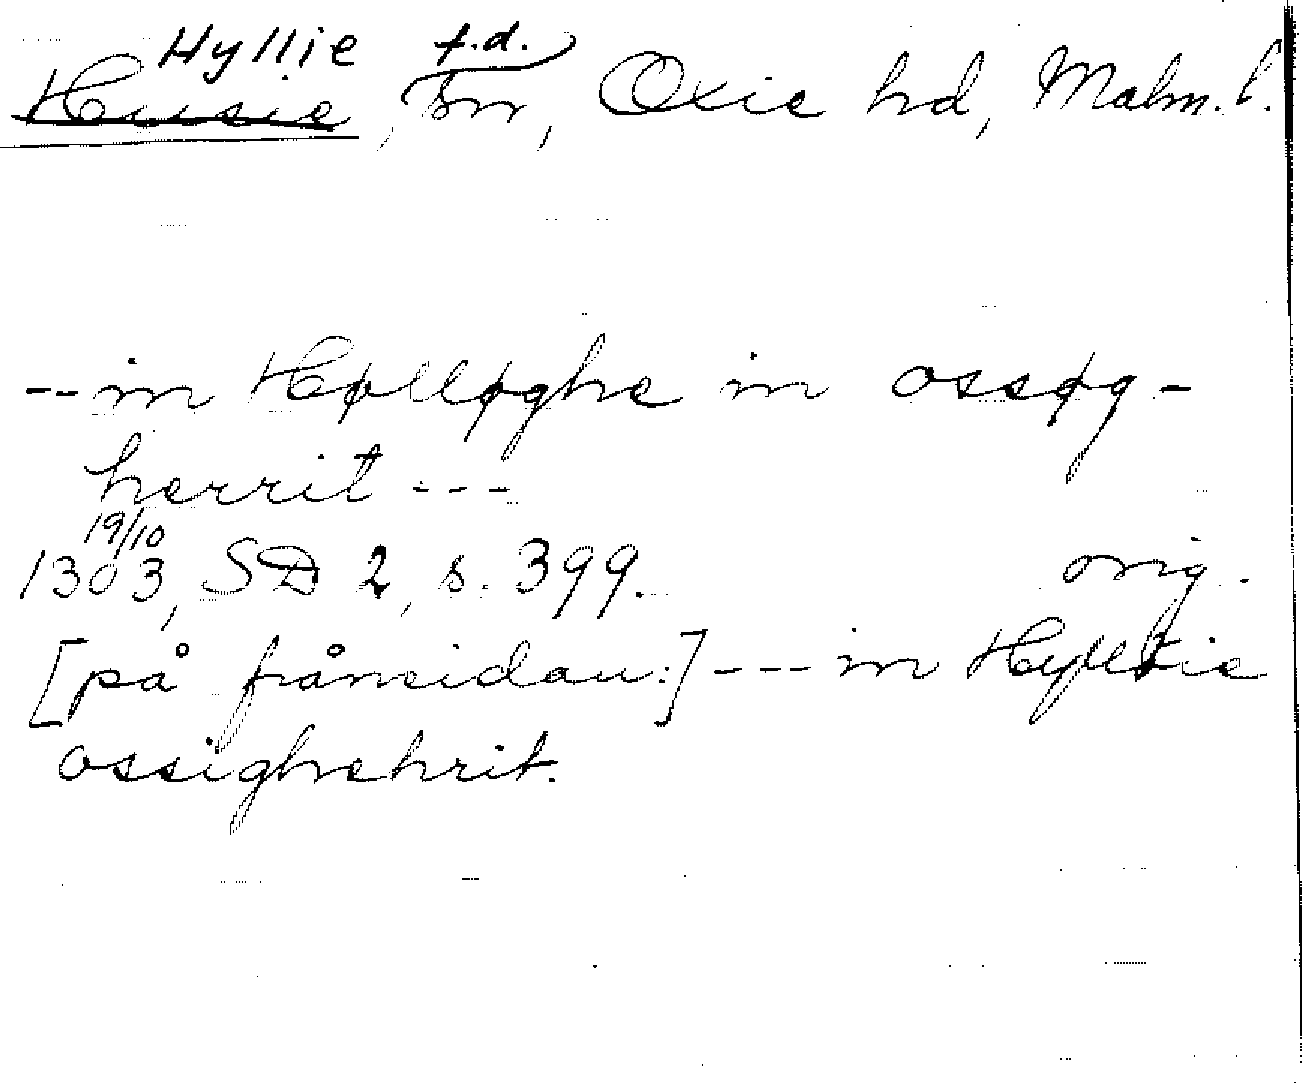 Hyllie f.d.
Husie, sn, Oxie hd, Malm. l.
-- in Hølløghe in ossøg-
herrit ---
19/10
1303, SD 2, s. 399. orig.
[på frånsidan:] --- in Hyllie
ossighehrit.